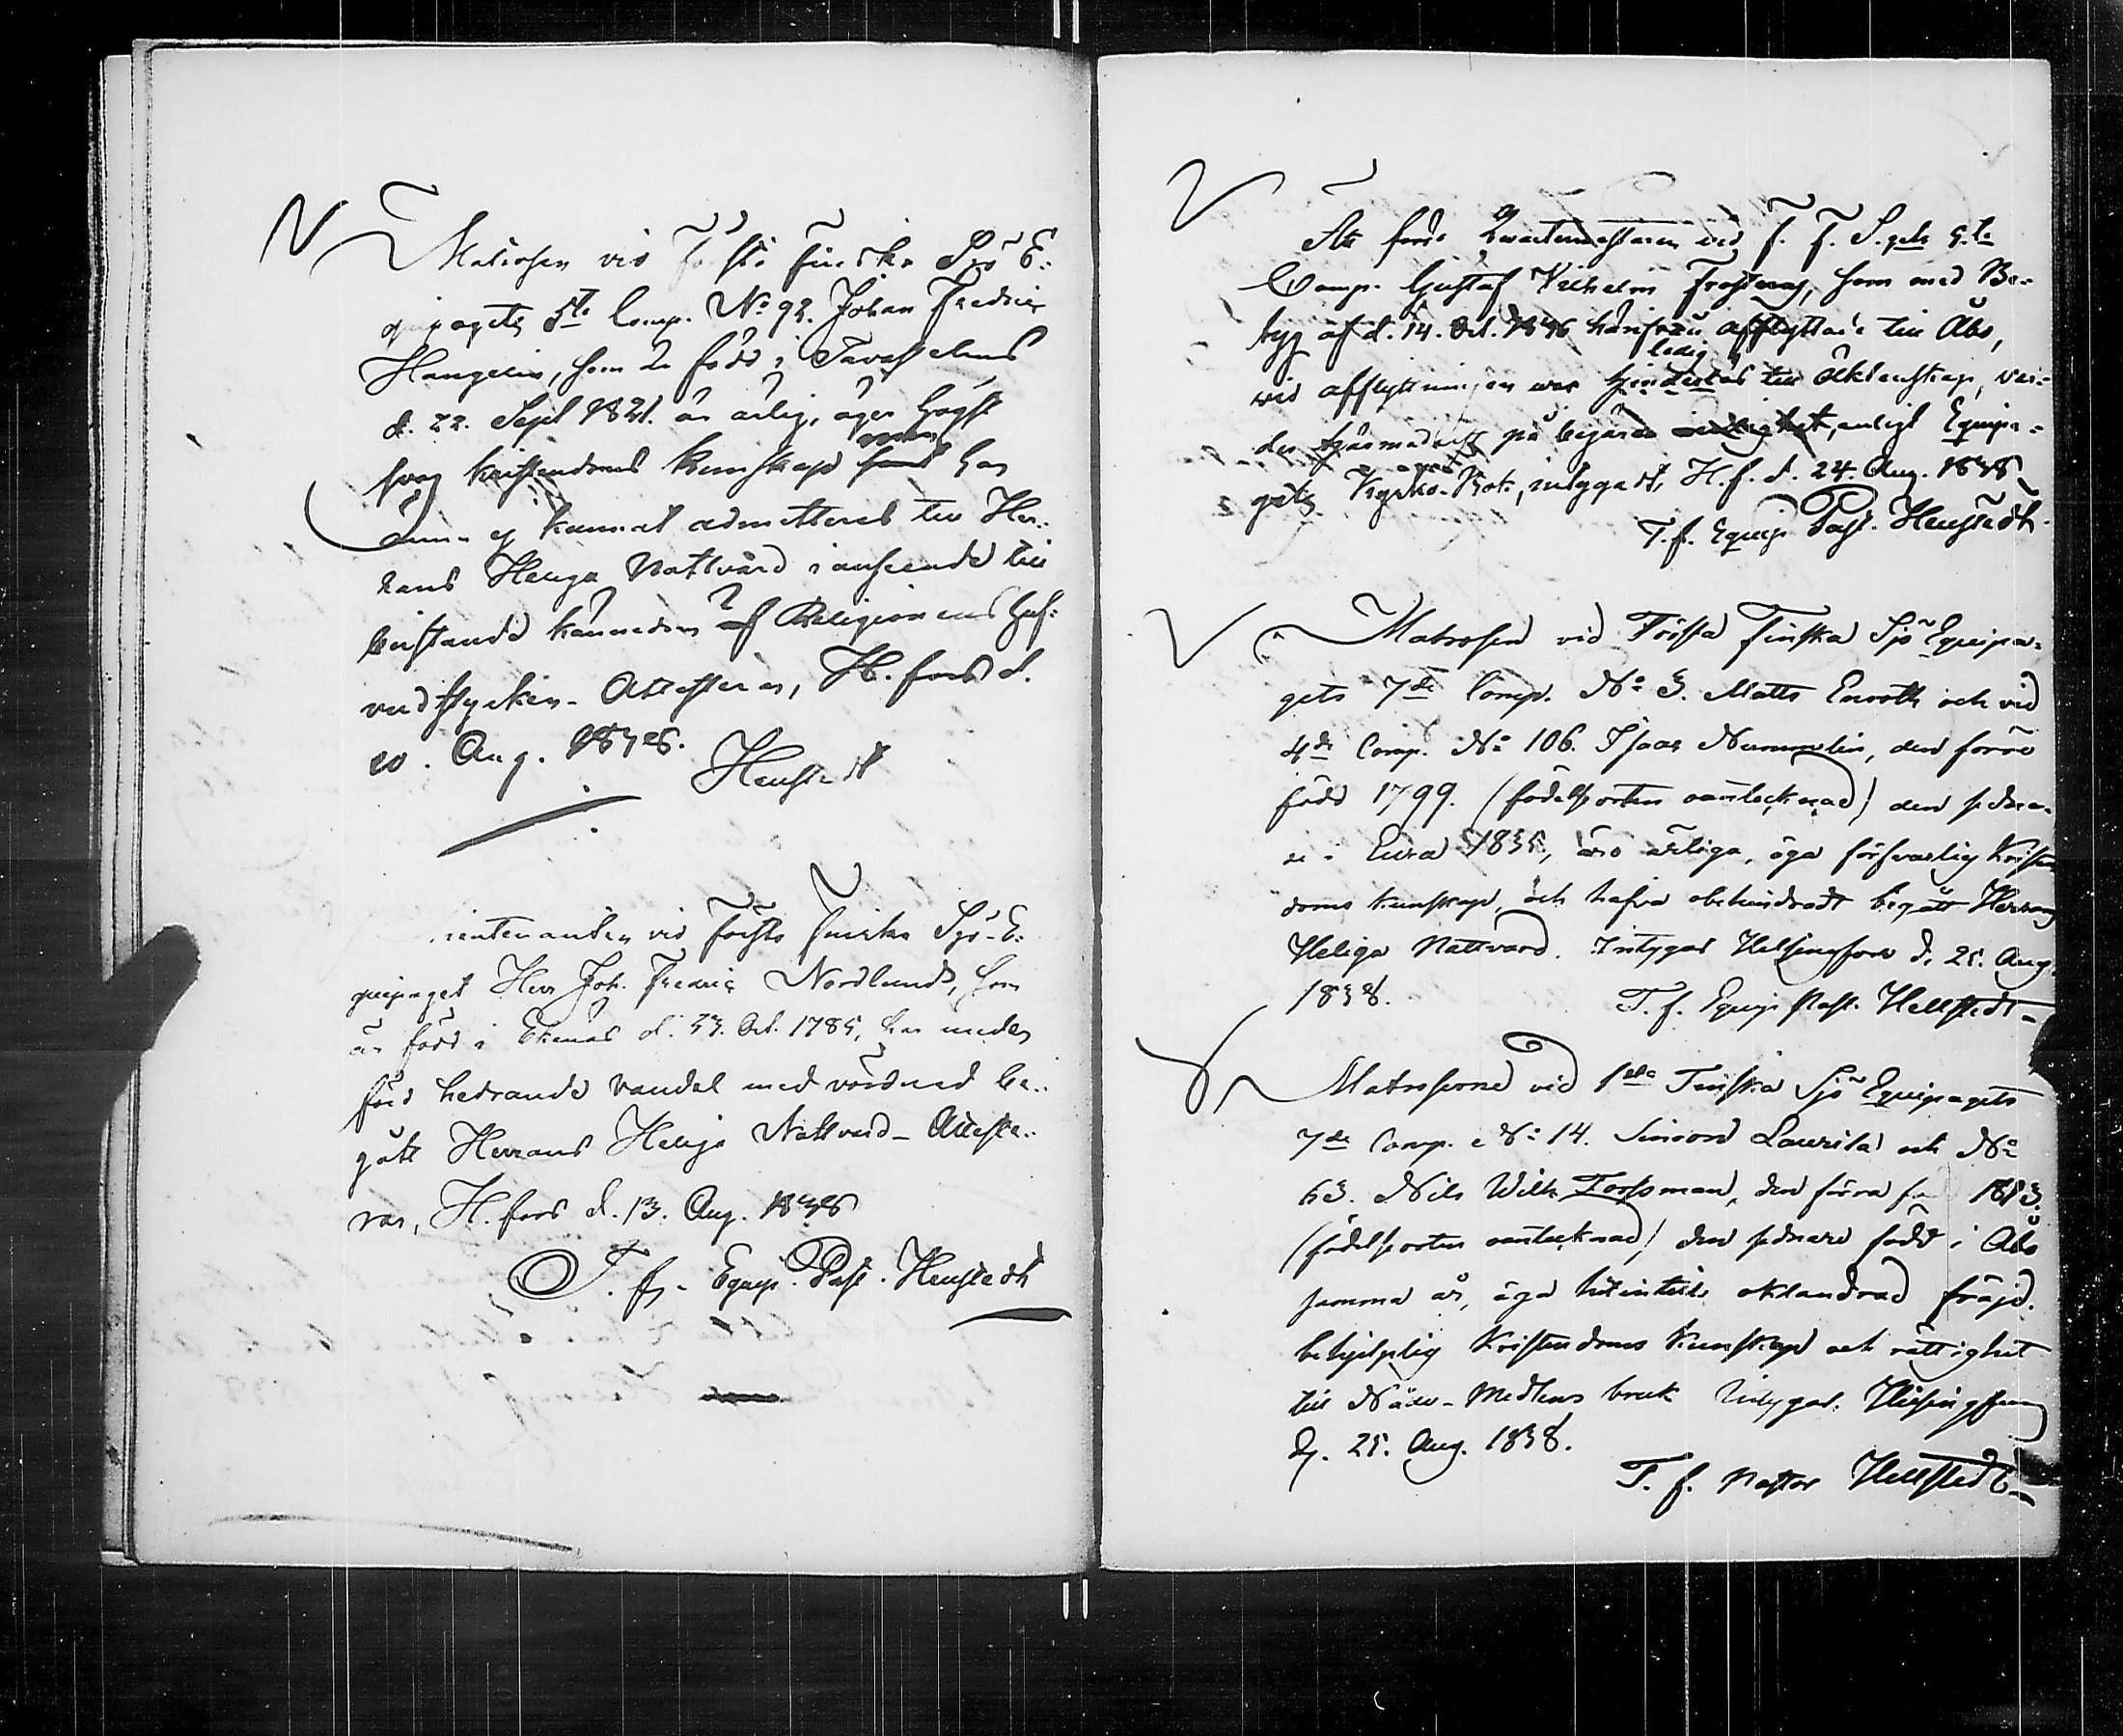 Matrosen vid Första Finska Sjö E-
quipagets 5te Comp. No 92. Johan Fredric
Hangelin, som är född i Tavastehus
d. 22. Sept 1821. är ärlig, äger högst
svag kristendoms kunskap har
ännu ej kunnat admitteras till Her-
rans Heliga Nattvard i anseende till
bristande kännedom af Religionens huf-
vudstycken. Attesteras, H.fors d.
10. Aug. 1838. Hellstedt
vid Första Finska Sjö-E-
quipaget Herr Joh. Fredric Nordlund, som
är född i Ekenäs d. Oct. 1785, har under
förd hedrande vandel med vördnad be-
gått Herrans Heliga Nattvard. Atteste-
ras, H.fors d. 13. Aug. 1838
T. f. Equip. Past. Hellstedt
Att förre Quartermästaren vid F. F. S. 5.te
Comp. Gustaf Vilhelm som med Be-
tyg af d. 14. Oct. 1836 härifrån afflyttade till Åbo,
vid afflyttningen var ledig till äktenskap, var-
der härmedelst på begäran enligt Equipa-
gets Kyrko-Bok, intygadt, H.f. d. 24. Aug. 1838
T.f. Equip Past. Hellstedt.
Matrosen vid Första Finska Sjö Equipa-
gets 7de Comp. No 3. Matts Enroth och vid
4de Comp. No 106. Isaac Nummelin, den förre
född 1799. (födelseorten oantecknad) den sedna-
re i Eura 1835, äro ärliga, äga försvarlig Kristen
doms kunskap, och hafva obehindradt begått Herrans
Heliga Nattvard. Intygas Helsingfors d. 25. Aug.
1838. T. f. Equip Past. Hellstedt
Matroserne vid 1sta Finska Sjö Equipagets
7de Comp. No 14. Simon Laurila och No
63. Nils Wilh. Forssman, den förra 1813.
(födelseorten oantecknad) den sednare född i Åbo
samma år, äga hitintills oklandrad fräjd.
behjelplig Kristendoms Kunskap och rättighet
till Nåde-Medlens bruk Intygas. Helsingfors
d. 25. Aug. 1838.
T. f. Pastor Hellstedt